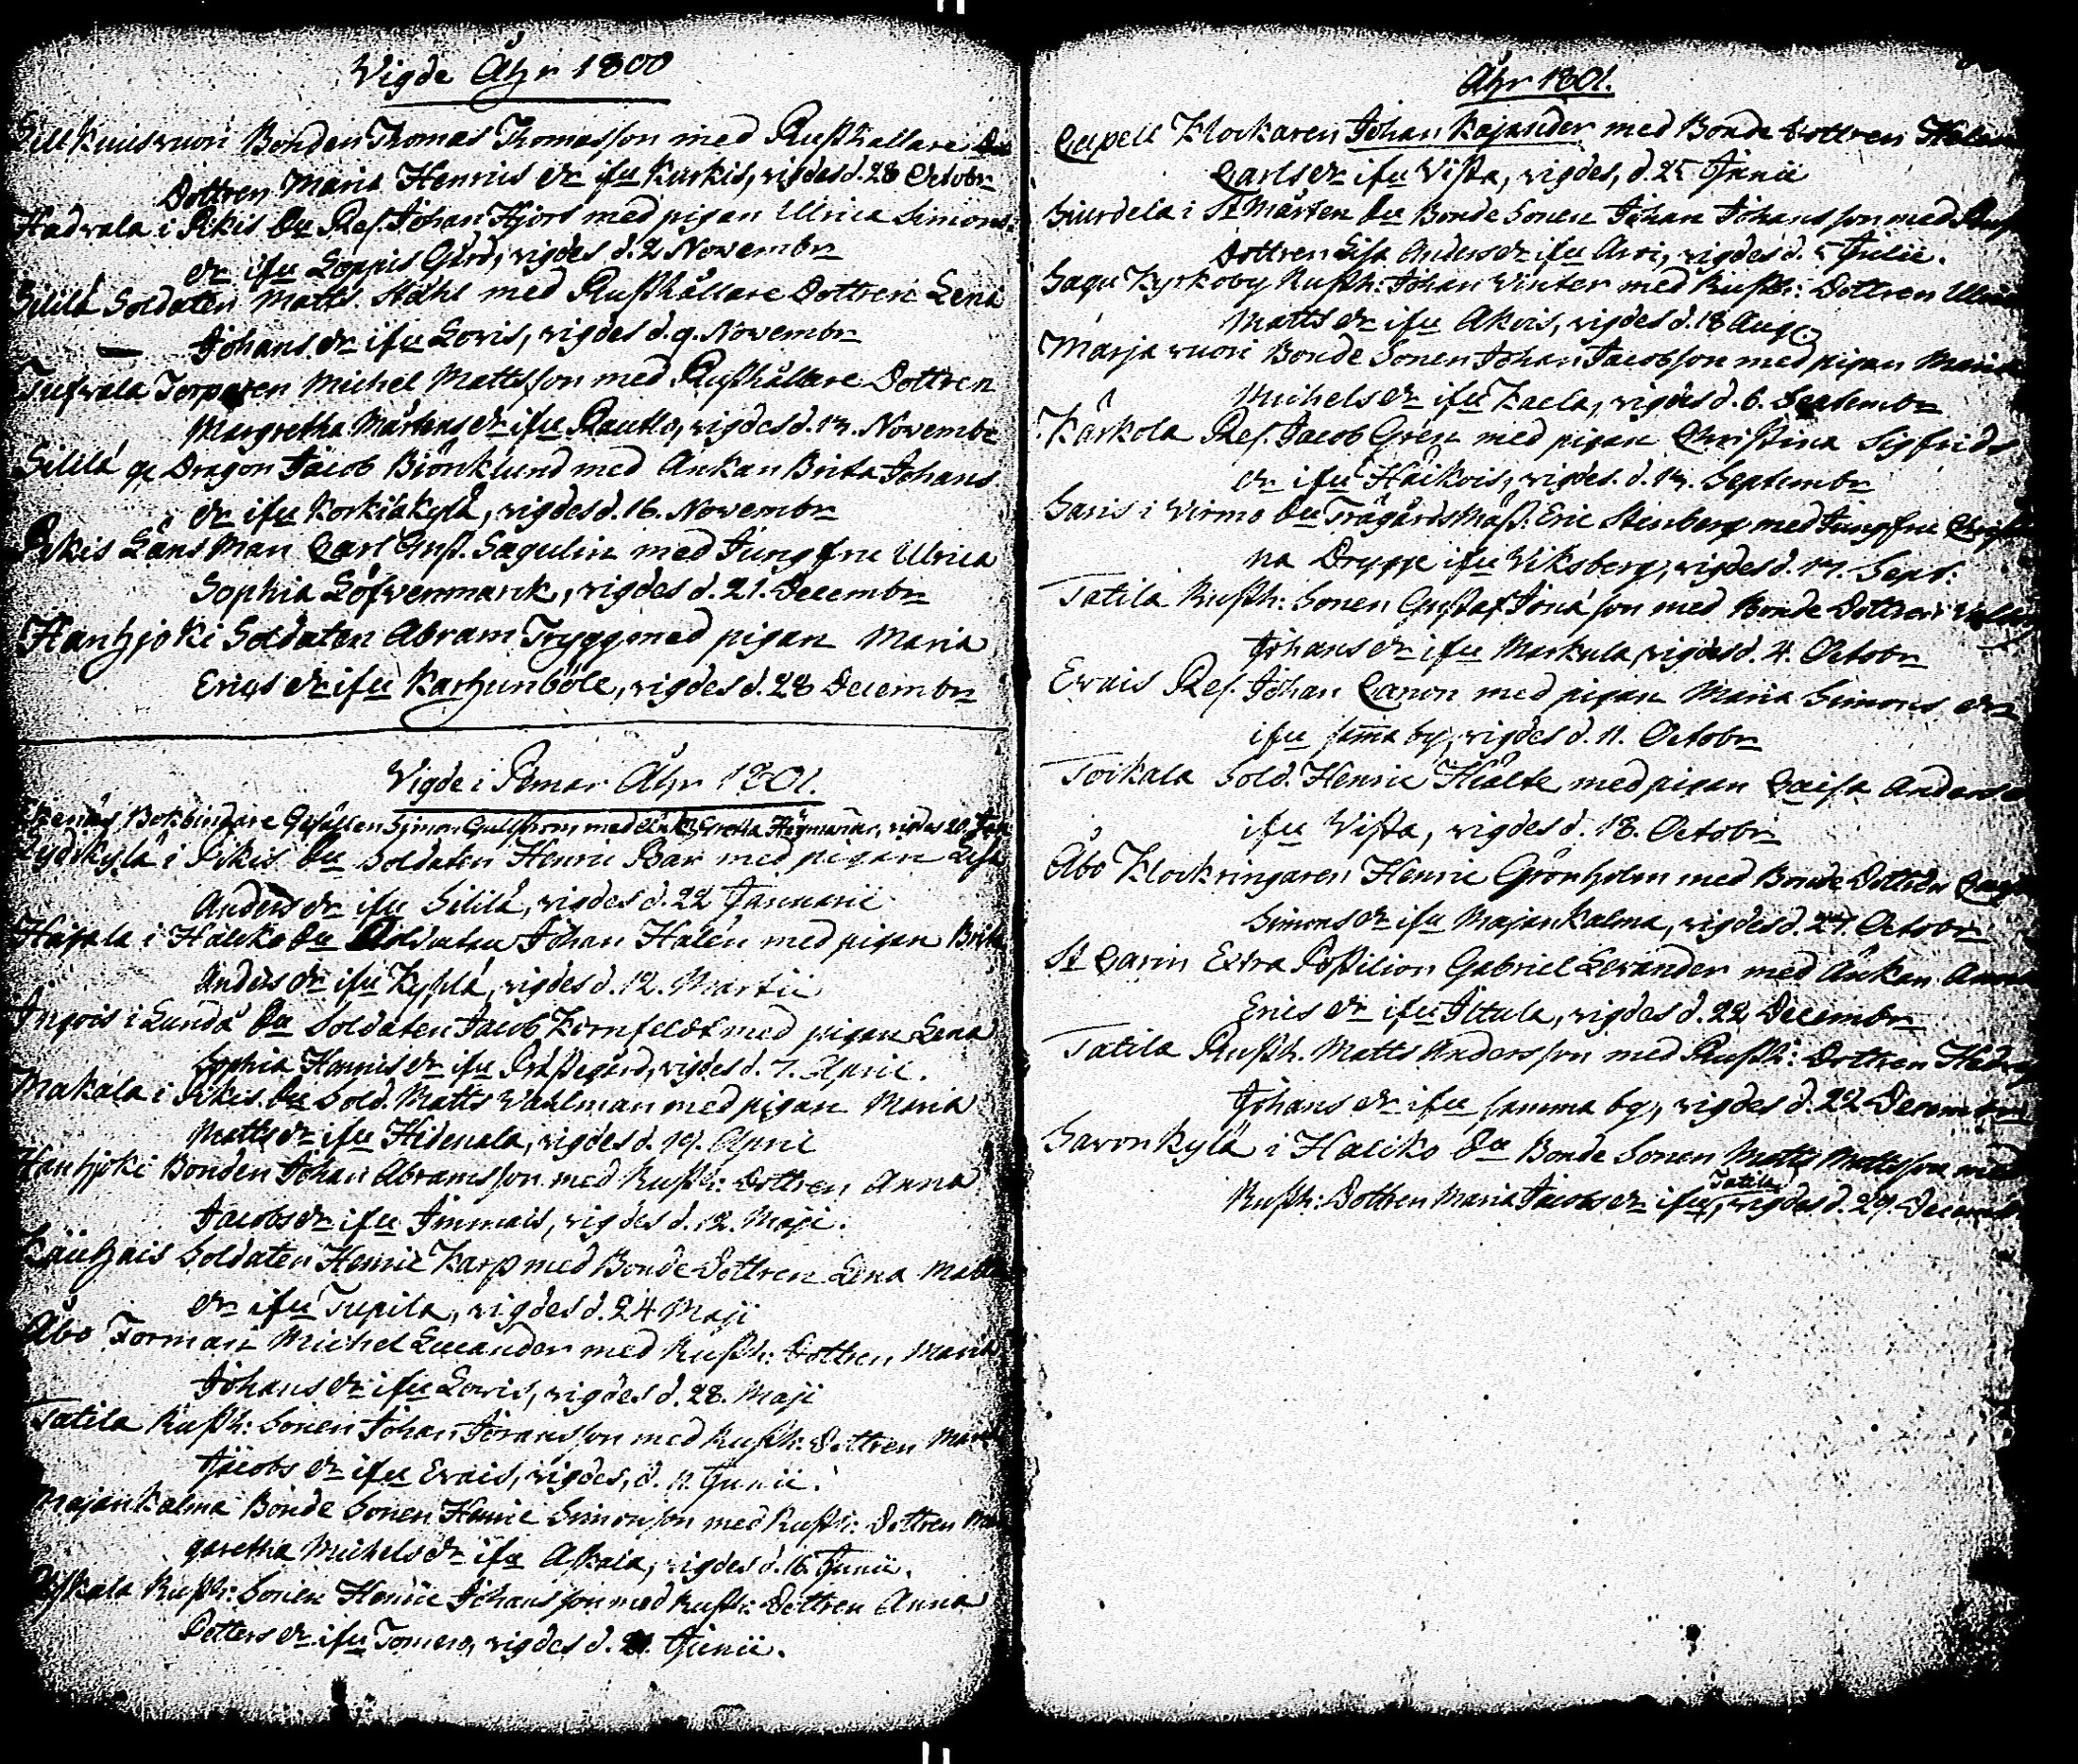 Vigde Åhr 1800
Bonden Thomas Thomasson med Rusthållare
Dottren Maria Henrics dr ifrn Karkis, vigdes d. 28 Octobr
Hadvala i Pikis Sn Ref. Johan Hjort med pigan Ulrica Simons
dr ifrn Loppis Gård, vigdes d. 2 Novembr
Sililä Soldaten Matts Ståhl med Rusthållare Dottren Lena
Johans dr ifrn Lovis, vigdes d. 9. Novembr
Torparen Michel Mattsson med Rusthållare Dottren
Margretha Mårtens dr ifrn Rautto, vigdes d. 13. Novembr
Sililä Dragon Jacob Biönklund med Änkan Brita Johans
dr ifrn Korkiakylä, vigdes d. 16. Novembr
Pikis Länsman Carl Gust. Sagulin med Jungfru Ulrica
Sophia Löfvenmarck, vigdes d. 21. Decembr
Hanhjoki Soldaten Abram Trygg med pigan Maria
Erics dr ifrn Karhunböle, vigdes d. 28 Decembr
Vigde i Pemar Åhr 1801.
Bokbindare Gesällen Simon Gullstrom med Greta vigdes 20. Jan
i Pikis Sn Soldaten Henric Bär med pigan Lisa
Anders dr ifrn Sililä, vigdes d. 22 Januarii
Hajala i Haliko Sn Soldaten Johan Halén med pigan Brita
Anders dr ifrn vigdes d. 12. Martii
i Lundå Sn Soldaten Jacob Kornfeldt med pigan Lena
Sophia Henrics dr ifrn Prästegård, vigdes d. 7. April.
Makala i Pikis Sn Sold. Matts Vahlman med pigan Maria
Matts dr ifrn Hedenala, vigdes d. 19. April
Hanhjoki Bonden Johan Abramsson med Rusth: Dottren Anna
Jacobs dr ifrn Immais, vigdes d. 12. Maji.
Soldaten Henric Karp med Bonde Dottren Lena Matts
dr ifrn Tupila, vigdes d. 24 Maji
Åbo Forman Michel Lucander med Rusth: Dottren Maria
Johans dr ifrn Lovis, vigdes d. 28. Maji
Tatila Rusth: Sonen Johan Göransson med Rusth: Dottren Maria
Jacobs dr ifrn Evais, vigdes, d. 11. Junii.
Majankalma Bonde Sonen Henric Simonsson med Rusth: Dottren Mar
garetha Michels dr ifrn Askala, vigdes d. 16. Junii.
Rusth: Sonen Henric Johansson med Rusth: Dottren Anna
Petters dr ifrn vigdes d. 21. Junii.
Åhr 1801.
Capell Klockaren Johan Kajander med Bonde Dottren Helena
Carls dr ifrn Vista, vigdes, d. 25 Junii
i St Mårten Sn Bonde Sonen Johan Johansson med Rusth
Dottren Lisa Anders dr ifrn Arvi, vigdes d. 5 Julii.
Sagu Kyrkoby Rusth: Johan Winter med Rusth: Dottren Ulrica
Matts dr ifrn Akois, vigdes d. 18 Aug
Marjavuori Bonde Sonen Johan Jacobsson med pigan Maria
Michels dr ifrn Kaela, vigdes d. 6. Septembr
Kärkola Ref. Jacob Gren med pigan Christina Sigfrids
dr ifrn Häikois, vigdes. d. 13. Septembr
Saris i Virmo Sn Trägårds Mäst: Eric Stenberg med Jungfru Christi
na Drygge ifrn Viksberg, vigdes d. 17. Sept:
Tatila Rusth: Sonen Gustaf Jonasson med Bonde Dottren
Johans dr ifrn Markula, vigdes d. 4. Octobr
Evais Ref. Johan Canon med pigan Maria Simons dr
ifrn samma by, vigdes d. 11. Octobr
Toikala Sold. Henric Hialte med pigan Caisa Anders
ifrn Vista, vigdes d. 18. Octobr
Åbo Klockringaren Henric Grönholm med Bonde Dottren
Simons dr ifrn Majankalma, vigdes d. 27. Octobr
St Carin Extra Postilion Gabriel Levander med Änkan Anna
Erics dr ifrn Iltula, vigdes d. 22 Decembr
Tatila Rusth. Matts Andersson med Rusth: Dottren Hedvig
Johans dr ifrn samma by, vigdes d. 22 Decembr
Savonkylä i Haliko Sn Bonde Sonen Matts Mattsson med
Rusth: Dottren Maria Jacobs dr ifrn Tatila, vigdes d. 29. Decembr